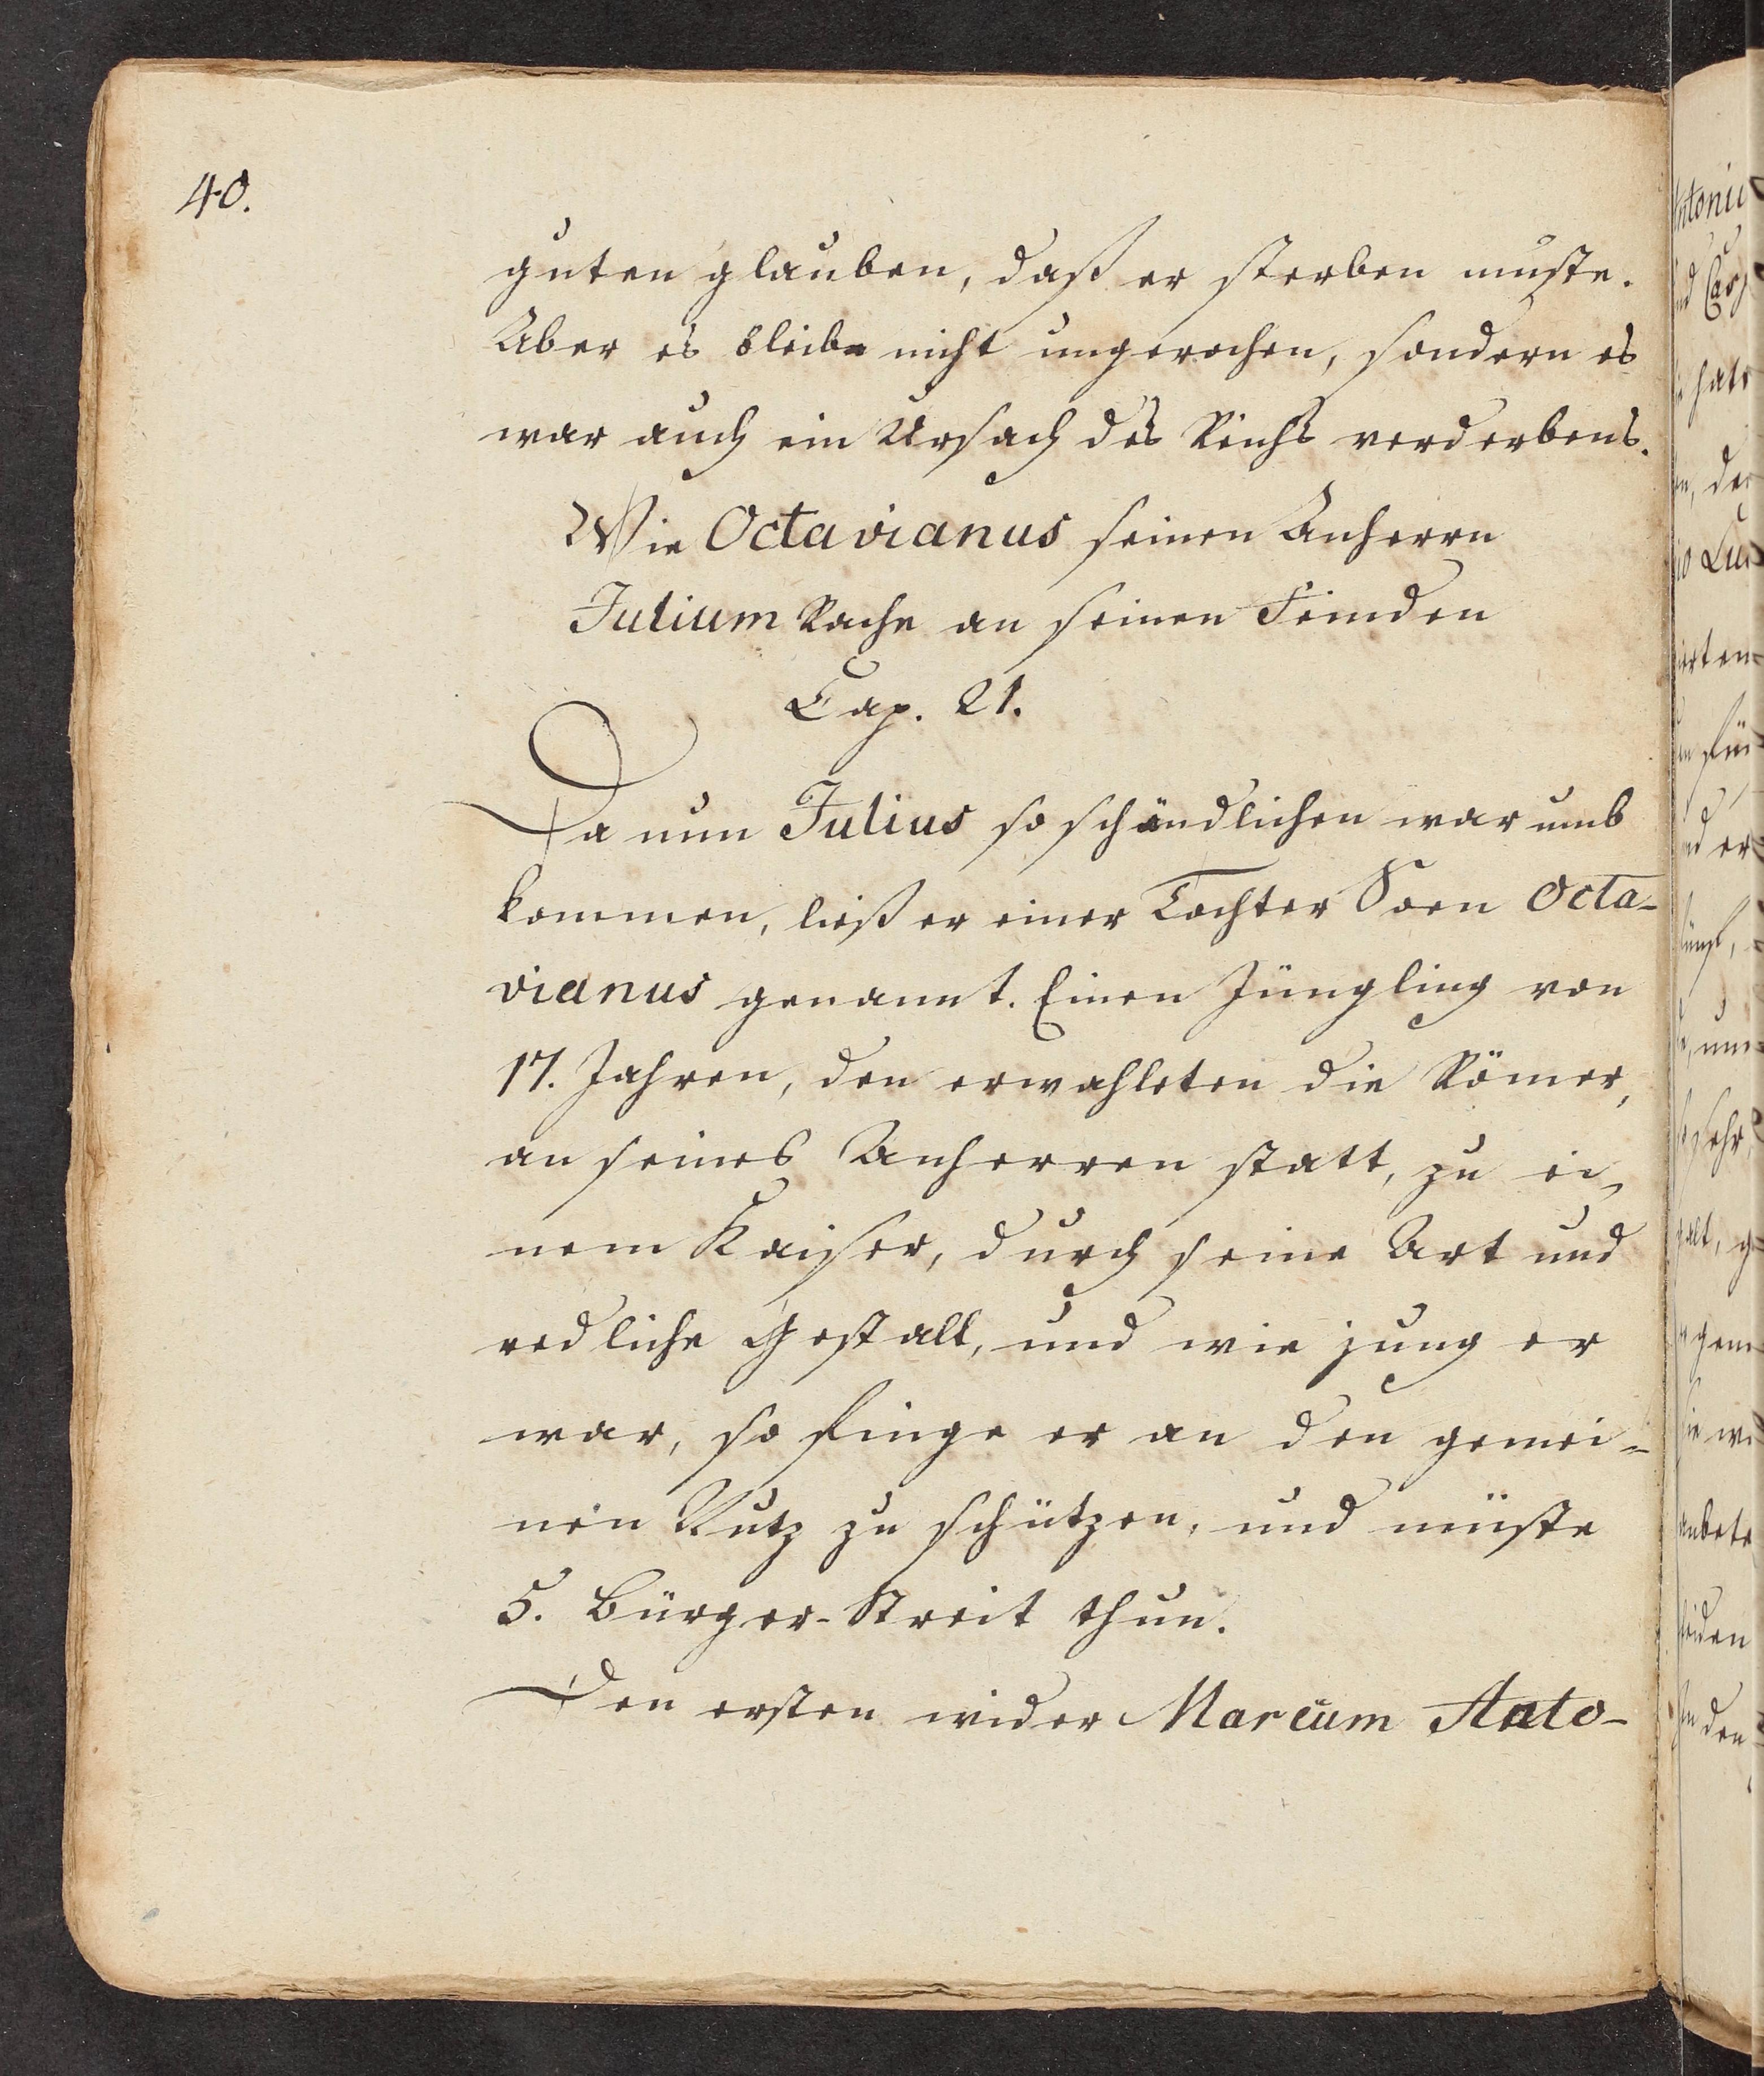 40.
guten glauben, daß er sterben muste.
Aber es bleibe nicht ungerochen, sondern es
war auch ein Ursach des Reichs verderbens.
Wie Octavianus seinen Anherrn
Julium Rache an seinen Feinden
Cap. 21.
Da nun Julius so schändlichen war umb
kommen, ließ er einer Tochter Soen Octa-
vianus genannt. Einen Jüngling von
17. Jahren, den erwahleten die Römer,
an seines Anherren statt, zu ei-
nem Kaiser, durch seine Art und
redliche Gestalt, und wie jung er
war, so finge er an den gemei-
nen Nutz zu schützen, und müste
5. Bürger-Streit thun.
Den ersten wider Marcum Anto-